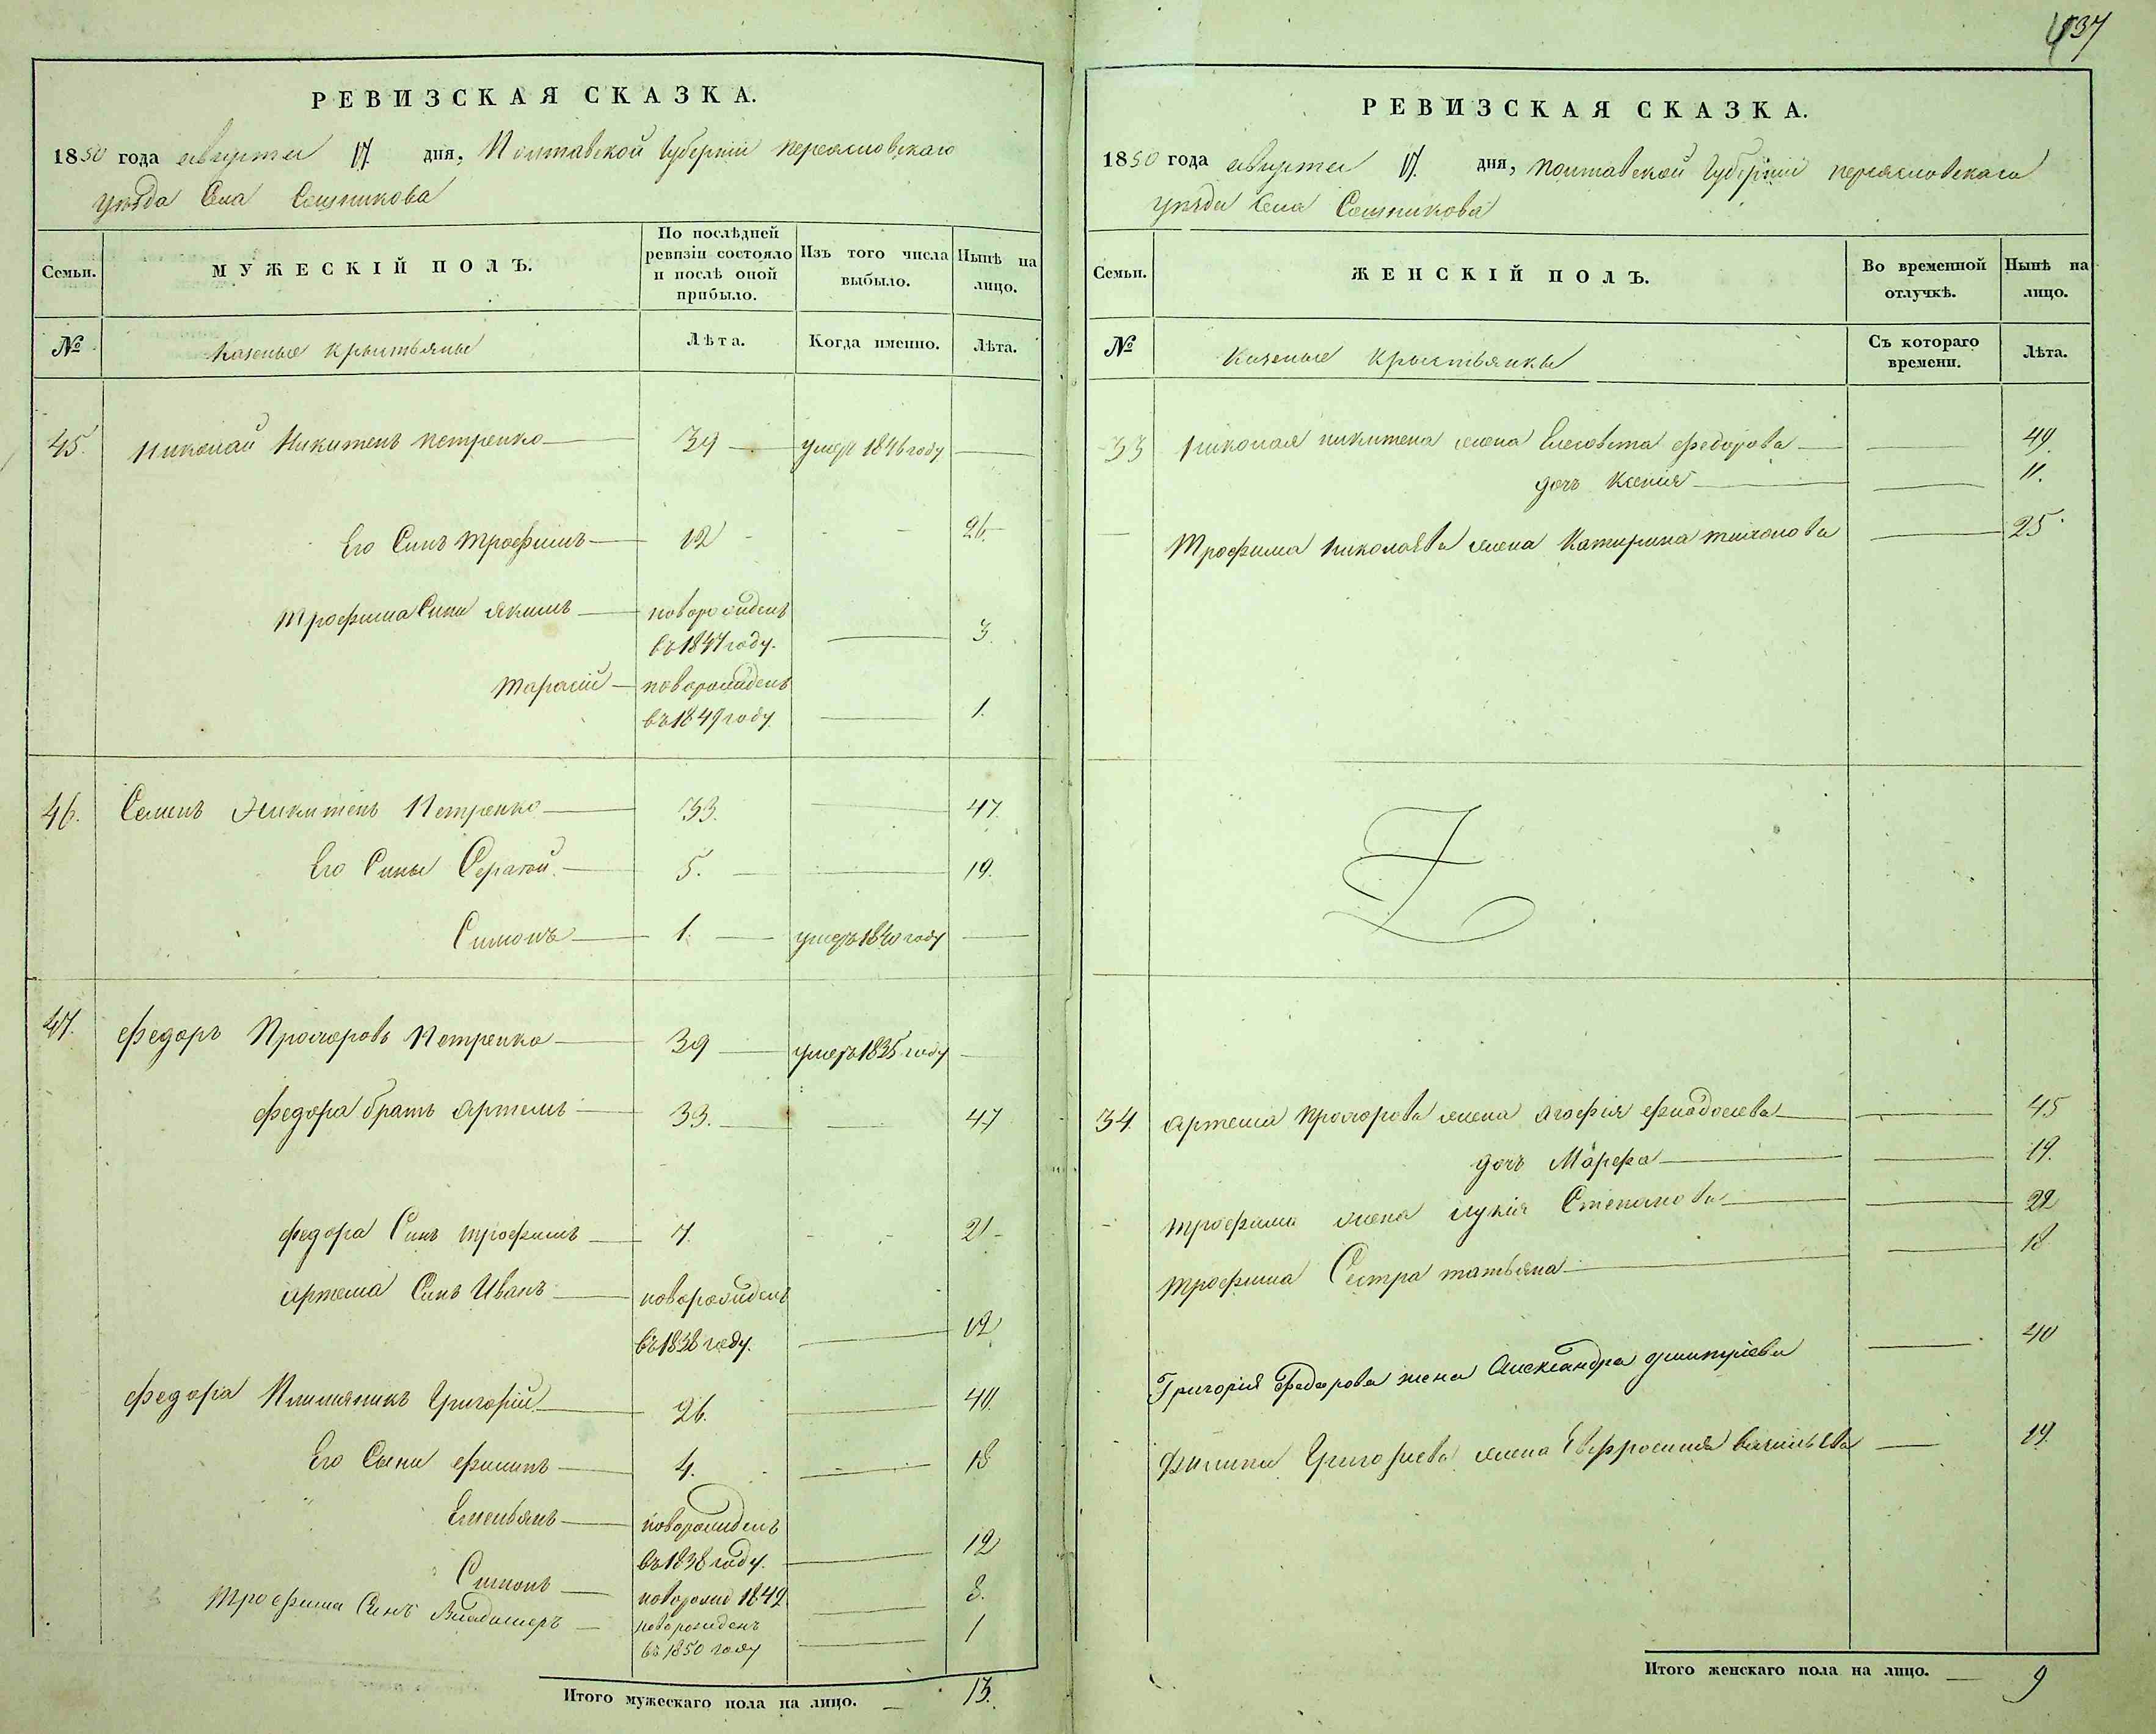 437
РЕВИЗСКАЯ СКАЗКА.
1850 года августа 17 дня, Полтавской Губернии переясловскаго
уезда Села Сошникова
Семьи. МУЖЕСКІЙ ПОЛЪ. По послѣдней ревизіи состояло и послѣ оной прибыло. Изъ того числа выбыло. Нынѣ на лицо.
№ Казеные крыстьяны Лѣта. Когда именно. Лѣта.
45. Николай Никитенъ петренко 39 умеръ 1846 году
Его Синъ трофимъ 12 26.
трофима Сини якимъ новорожденъ
въ 1847 году. 3.
тарасій новорожденъ
въ 1849 году 1.
46. Семенъ Никитенъ Петренко 33. 47.
Его Сины Сергѣй 5. 19.
Симонъ 1. умеръ 1840 году
47. Федоръ Прохоровъ Петренко 39 умеръ 1835 году
Федора братъ артемъ 33. 47
федора Синъ трофимъ 7. 21
артема Синъ Иванъ новорожденъ
въ 1838 году. 12
федора Племяникъ Григорій 26. 40.
Его Сыни филипъ 4. 18
Емельянъ новорожденъ
въ 1838 году. 12
Симонъ новорожд 1842 8.
Трофима Синъ Владимеръ новорожденъ
въ 1850 году 1
Итого мужескаго пола на лицо. 13.
РЕВИЗСКАЯ СКАЗКА.
1850 года августа 17. дня, полтавской Губерніи переясловскаго
уезда Села Сошникова
Семьи. ЖЕНСКІЙ ПОЛЪ. Во временной отлучкѣ. Нынѣ на лицо.
№ Казеные крыстьянкы Съ котораго времени. Лѣта.
33 Николая никитена жена Елесовета федорова 49.
дочъ Ксенія 11.
Трофима Николаева жена Катирина тихонова 25
34. артема прохорова жена агофія феодосиева 45
дочъ Марфа 19.
трофима жена лукія Степанова 22
трофима Сестра татьяна 18
Григорія Федорова жена Александра дмитріева 40
филипа Григориева жена Евфросинія василѣва 19.
Итого женскаго пола на лицо. 9